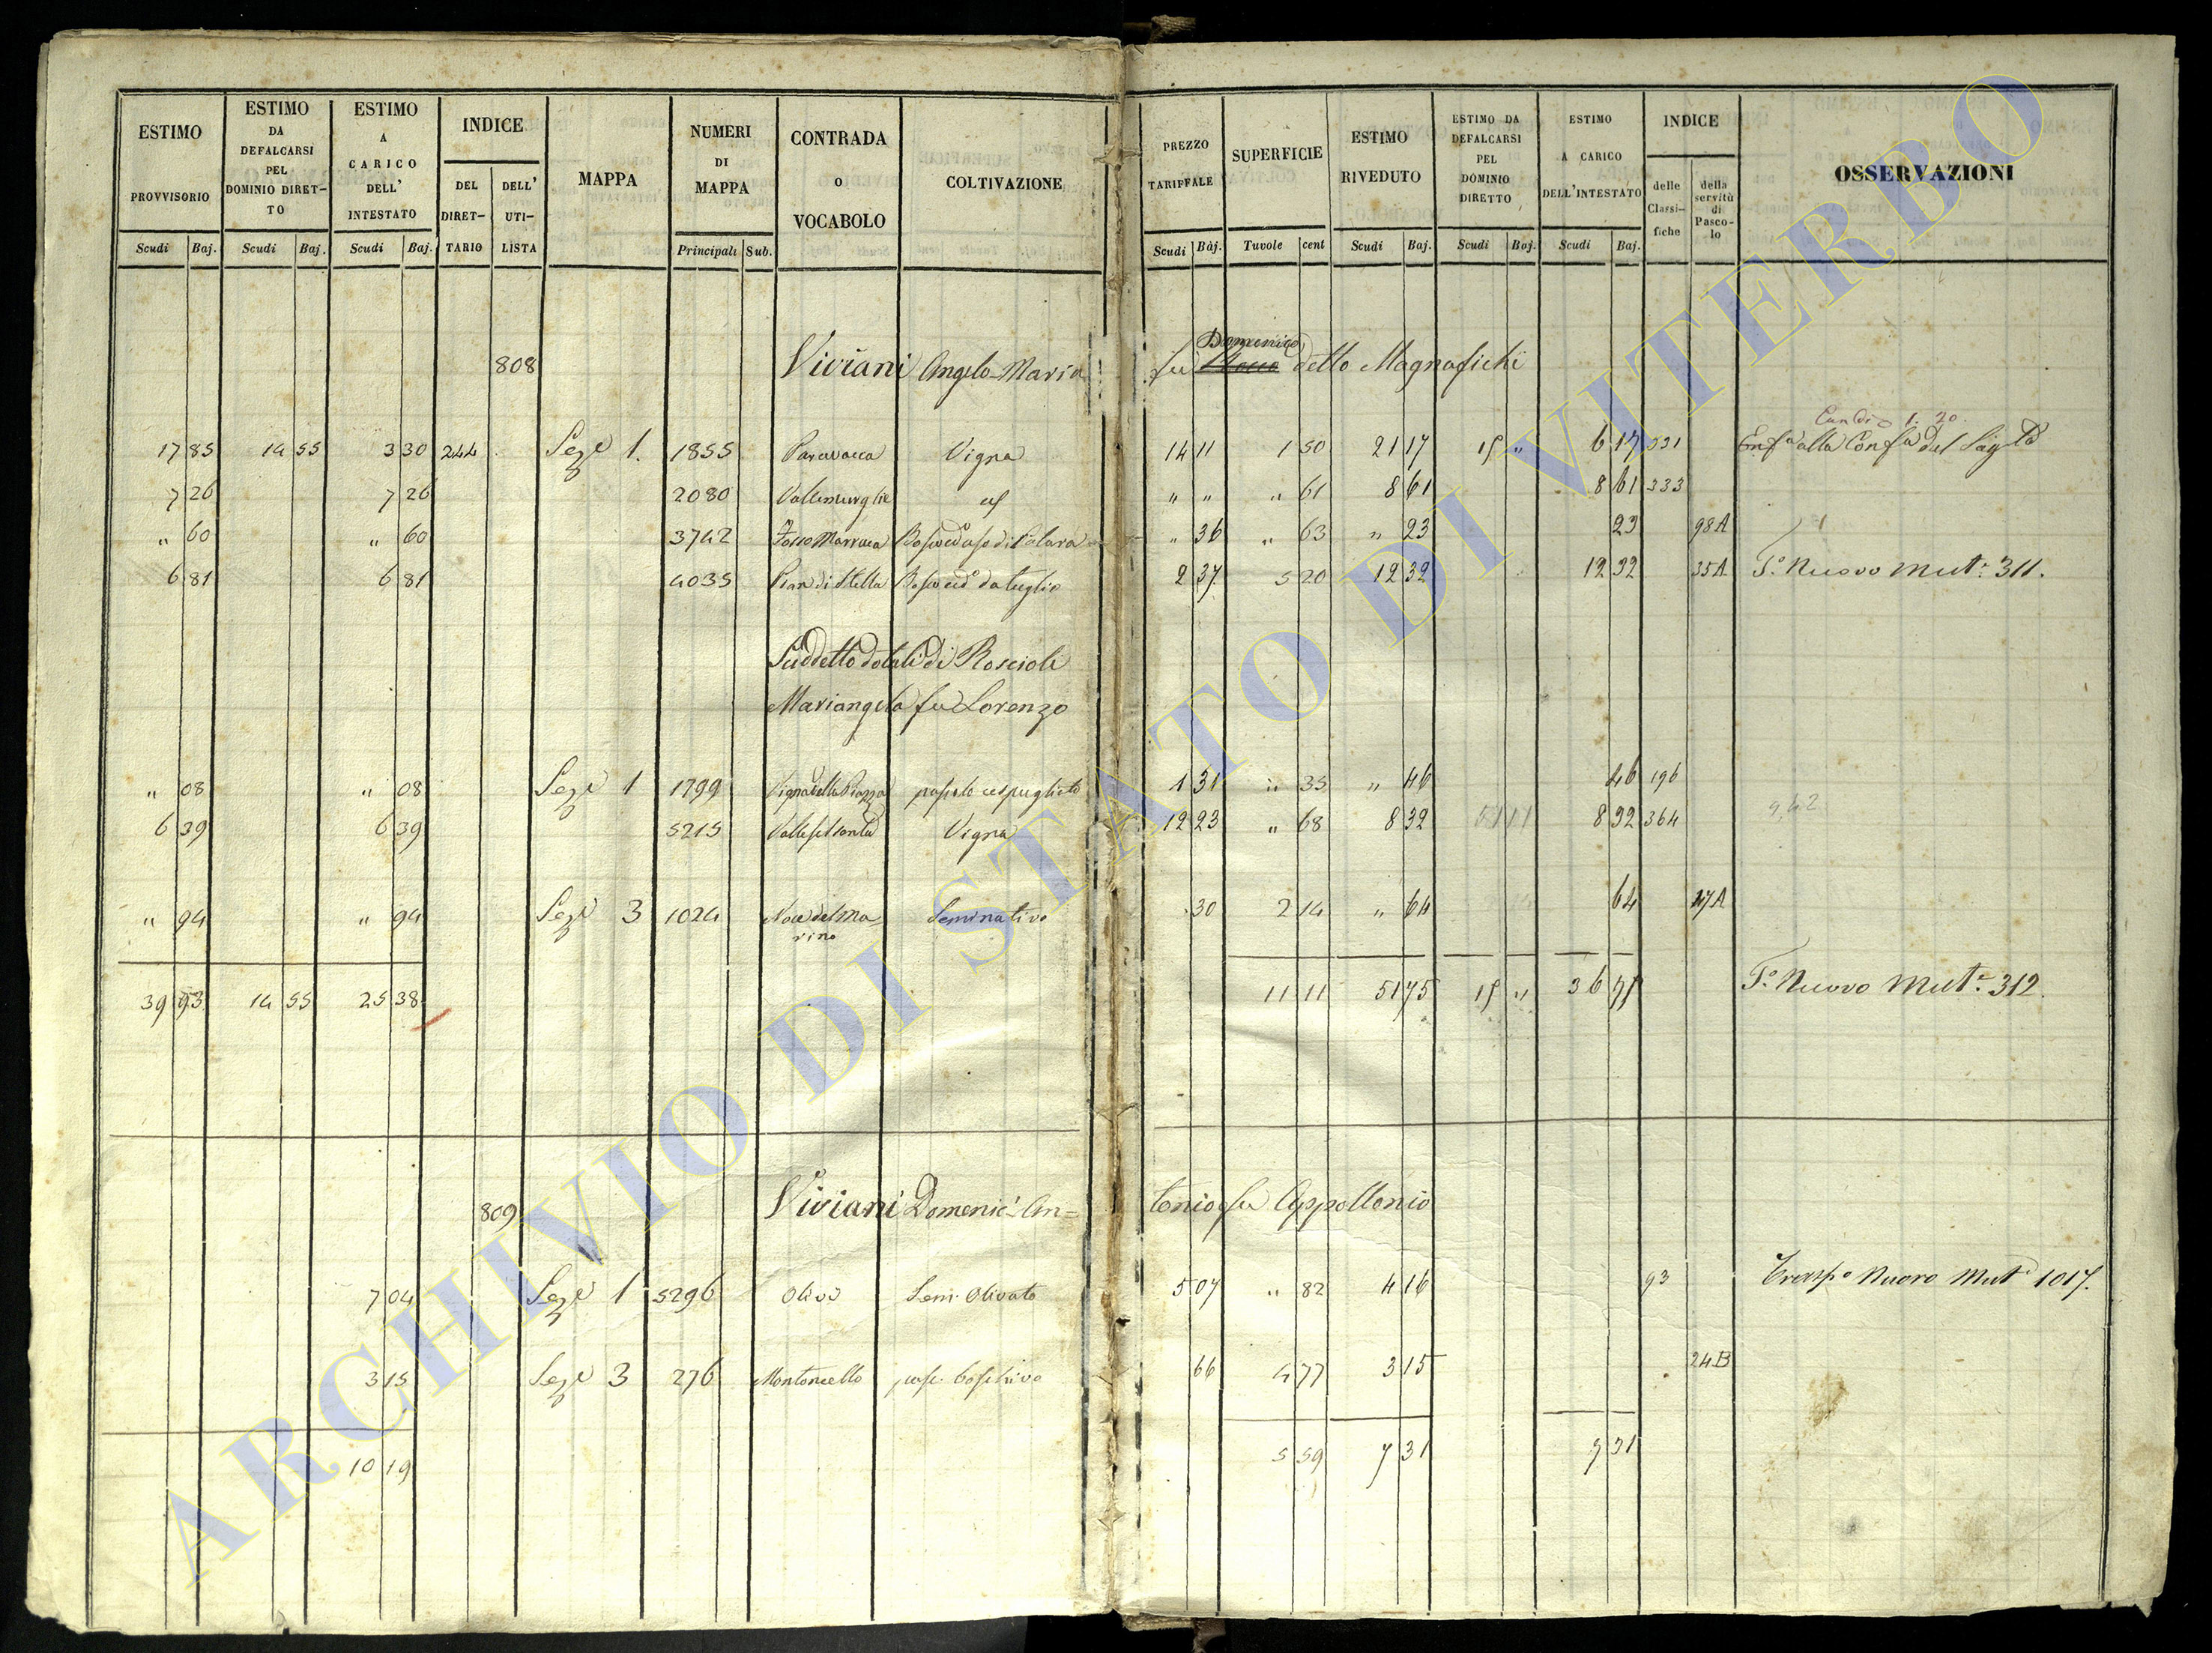 ESTIMO PROVVISORIO Scudi Baj.
ESTIMO DA DEFALCARSI PEL DOMINIO DIRET-TO Scudi Baj.
ESTIMO A CARICO DELL' INTESTATO Scudi Baj.
INDICE DEL DIRET-TARIO DELL' UTI-LISTA
MAPPA
NUMERI DI MAPPA Principali Sub.
CONTRADA O VOCABOLO
COLTIVAZIONE
PREZZO TARIFFALE Scudi Baj.
SUPERFICIE Tavole cent
ESTIMO RIVEDUTO Scudi Baj.
ESTIMO DA DEFALCARSI PEL DOMINIO DIRETTO Scudi Baj.
ESTIMO A CARICO DELL'INTESTATO Scudi Baj.
INDICE delle Classi-fiche della servitù di Pasco-lo
OSSERVAZIONI
Domenico
808 Viviani Angelo-Maria fu Rocco detto Magnafichi
17 85 14 55 3 30 244 Seze 1. 1855 Vigna 14 11 1 50 21 17 15 " 6 17 331 Enfa alla Confa del
7 26 7 26 2080 " " " 61 8 61 8 61 333
" 60 " 60 3742 Fosso " 36 " 63 " 23 23 98A
6 81 6 81 4035 Pian di Stella Bosco ced° da taglio 2 37 5 20 12 32 12 32 35A T° Nuovo Mut: 311.
Suddetto dotali di Roscioli
Mariangela fu Lorenzo
" 08 " 08 Sezе 1 1799 Vigna della Piazza pascolo cespugliato 1 31 " 35 " 46 46 196
6 39 6 39 5215 Vigna 12 23 " 68 8 32 8 32 364 9,42
" 94 " 94 Seze 3 1024 Noce del Ma-rino Seminativo 30 2 14 " 64 64 17A
39 93 14 55 25 38 11 11 51 75 15 " 36 75 T° Nuovo Mut: 312.
809 Viviani Domenic'-An=tonio fu Appollonio
7 04 Seze 1 5296 Olivi Sem: Olivato 5 07 " 82 4 16 93 Trasp° Nuovo Mut: 1017.
3 15 Seze 3 276 Montoncello pasc. boschivo 66 4 77 3 15 24B
10 19 5 59 7 31 7 31
ARCHIVIO DI STATO DI VITERBO